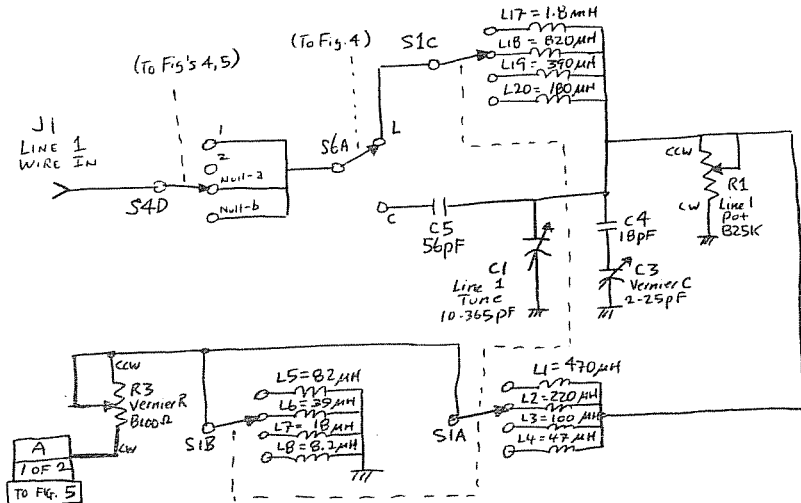 L17 = 1.8 mH
L18 = 820 µH
L19 = 390 µH
L20 = 180 µH
S1C
(To Fig. 4)
(To Fig's 4,5)
J1
LINE 1
WIRE IN
S4D
1
2
Null-a
Null-b
S6A
L
C
C5
56pF
C1
Line 1
Tune
10-365pF
C4
18pF
C3
Vernier C
2-25pF
CCW
CW
R1
Line 1
Pot
B25K
CCW
R3
Vernier R
B100Ω
CW
A
1 OF 2
TO FIG. 5
S1B
L5 = 82 µH
L6 = 39 µH
L7 = 18 µH
L8 = 8.2 µH
S1A
L1 = 470 µH
L2 = 220 µH
L3 = 100 µH
L4 = 47 µH